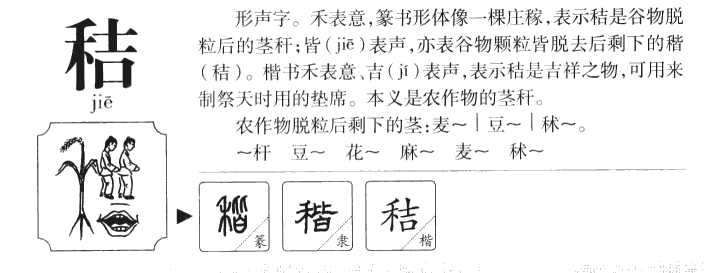 秸
jiē
形声字。禾表意,篆书形体像一棵庄稼,表示秸是谷物脱
粒后的茎秆;皆(jiē)表声,亦表谷物颗粒皆脱去后剩下的稭
(秸)。楷书禾表意、吉(jí)表声,表示秸是吉祥之物,可用来
制祭天时用的垫席。本义是农作物的茎秆。
农作物脱粒后剩下的茎:麦～｜豆～｜秫～。
～杆 豆～ 花～ 麻～ 麦～ 秫～
稭 篆 稭 隶 秸 楷